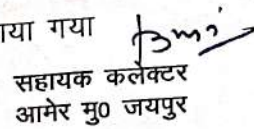 या गया
सहायक कलेक्टर
आमेर मु0 जयपुर